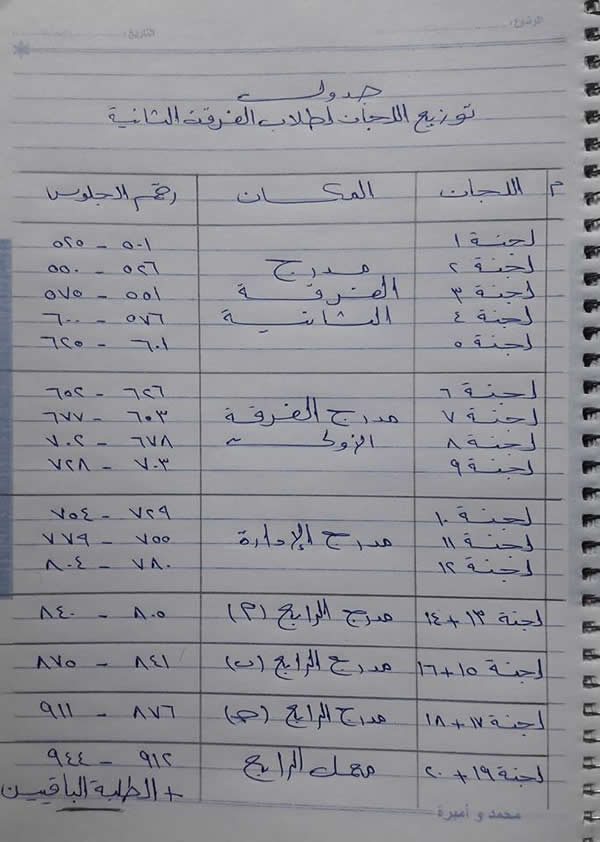 الموضوع:
التاريخ:
جدول
توزيع اللجان لطلاب الفرقة الثانية
م اللجان المكان رقم الجلوس
لجنة ١ ٥٠١ - ٥٢٥
لجنة ٢ مدرج ٥٢٦ - ٥٥٠
لجنة ٣ الفرقة ٥٥١ - ٥٧٥
لجنة ٤ الثانية ٥٧٦ - ٦٠٠
لجنة ٥ ٦٠١ - ٦٢٥
لجنة ٦ ٦٢٦ - ٦٥٢
لجنة ٧ مدرج الفرقة ٦٥٣ - ٦٧٧
لجنة ٨ الأولى ٦٧٨ - ٧٠٢
لجنة ٩ ٧٠٣ - ٧٢٨
لجنة ١٠ ٧٢٩ - ٧٥٤
لجنة ١١ مدرج الإدارة ٧٥٥ - ٧٧٩
لجنة ١٢ ٧٨٠ - ٨٠٤
لجنة ١٣ + ١٤ مدرج الرابع (م) ٨٠٥ - ٨٤٠
لجنة ١٥ + ١٦ مدرج الرابع (ب) ٨٤١ - ٨٧٥
لجنة ١٧ + ١٨ مدرج الرابع (ج) ٨٧٦ - ٩١١
لجنة ١٩ + ٢٠ معمل الرابع ٩١٢ - ٩٤٤
+ الطلبة الباقيين
محمد و أميرة